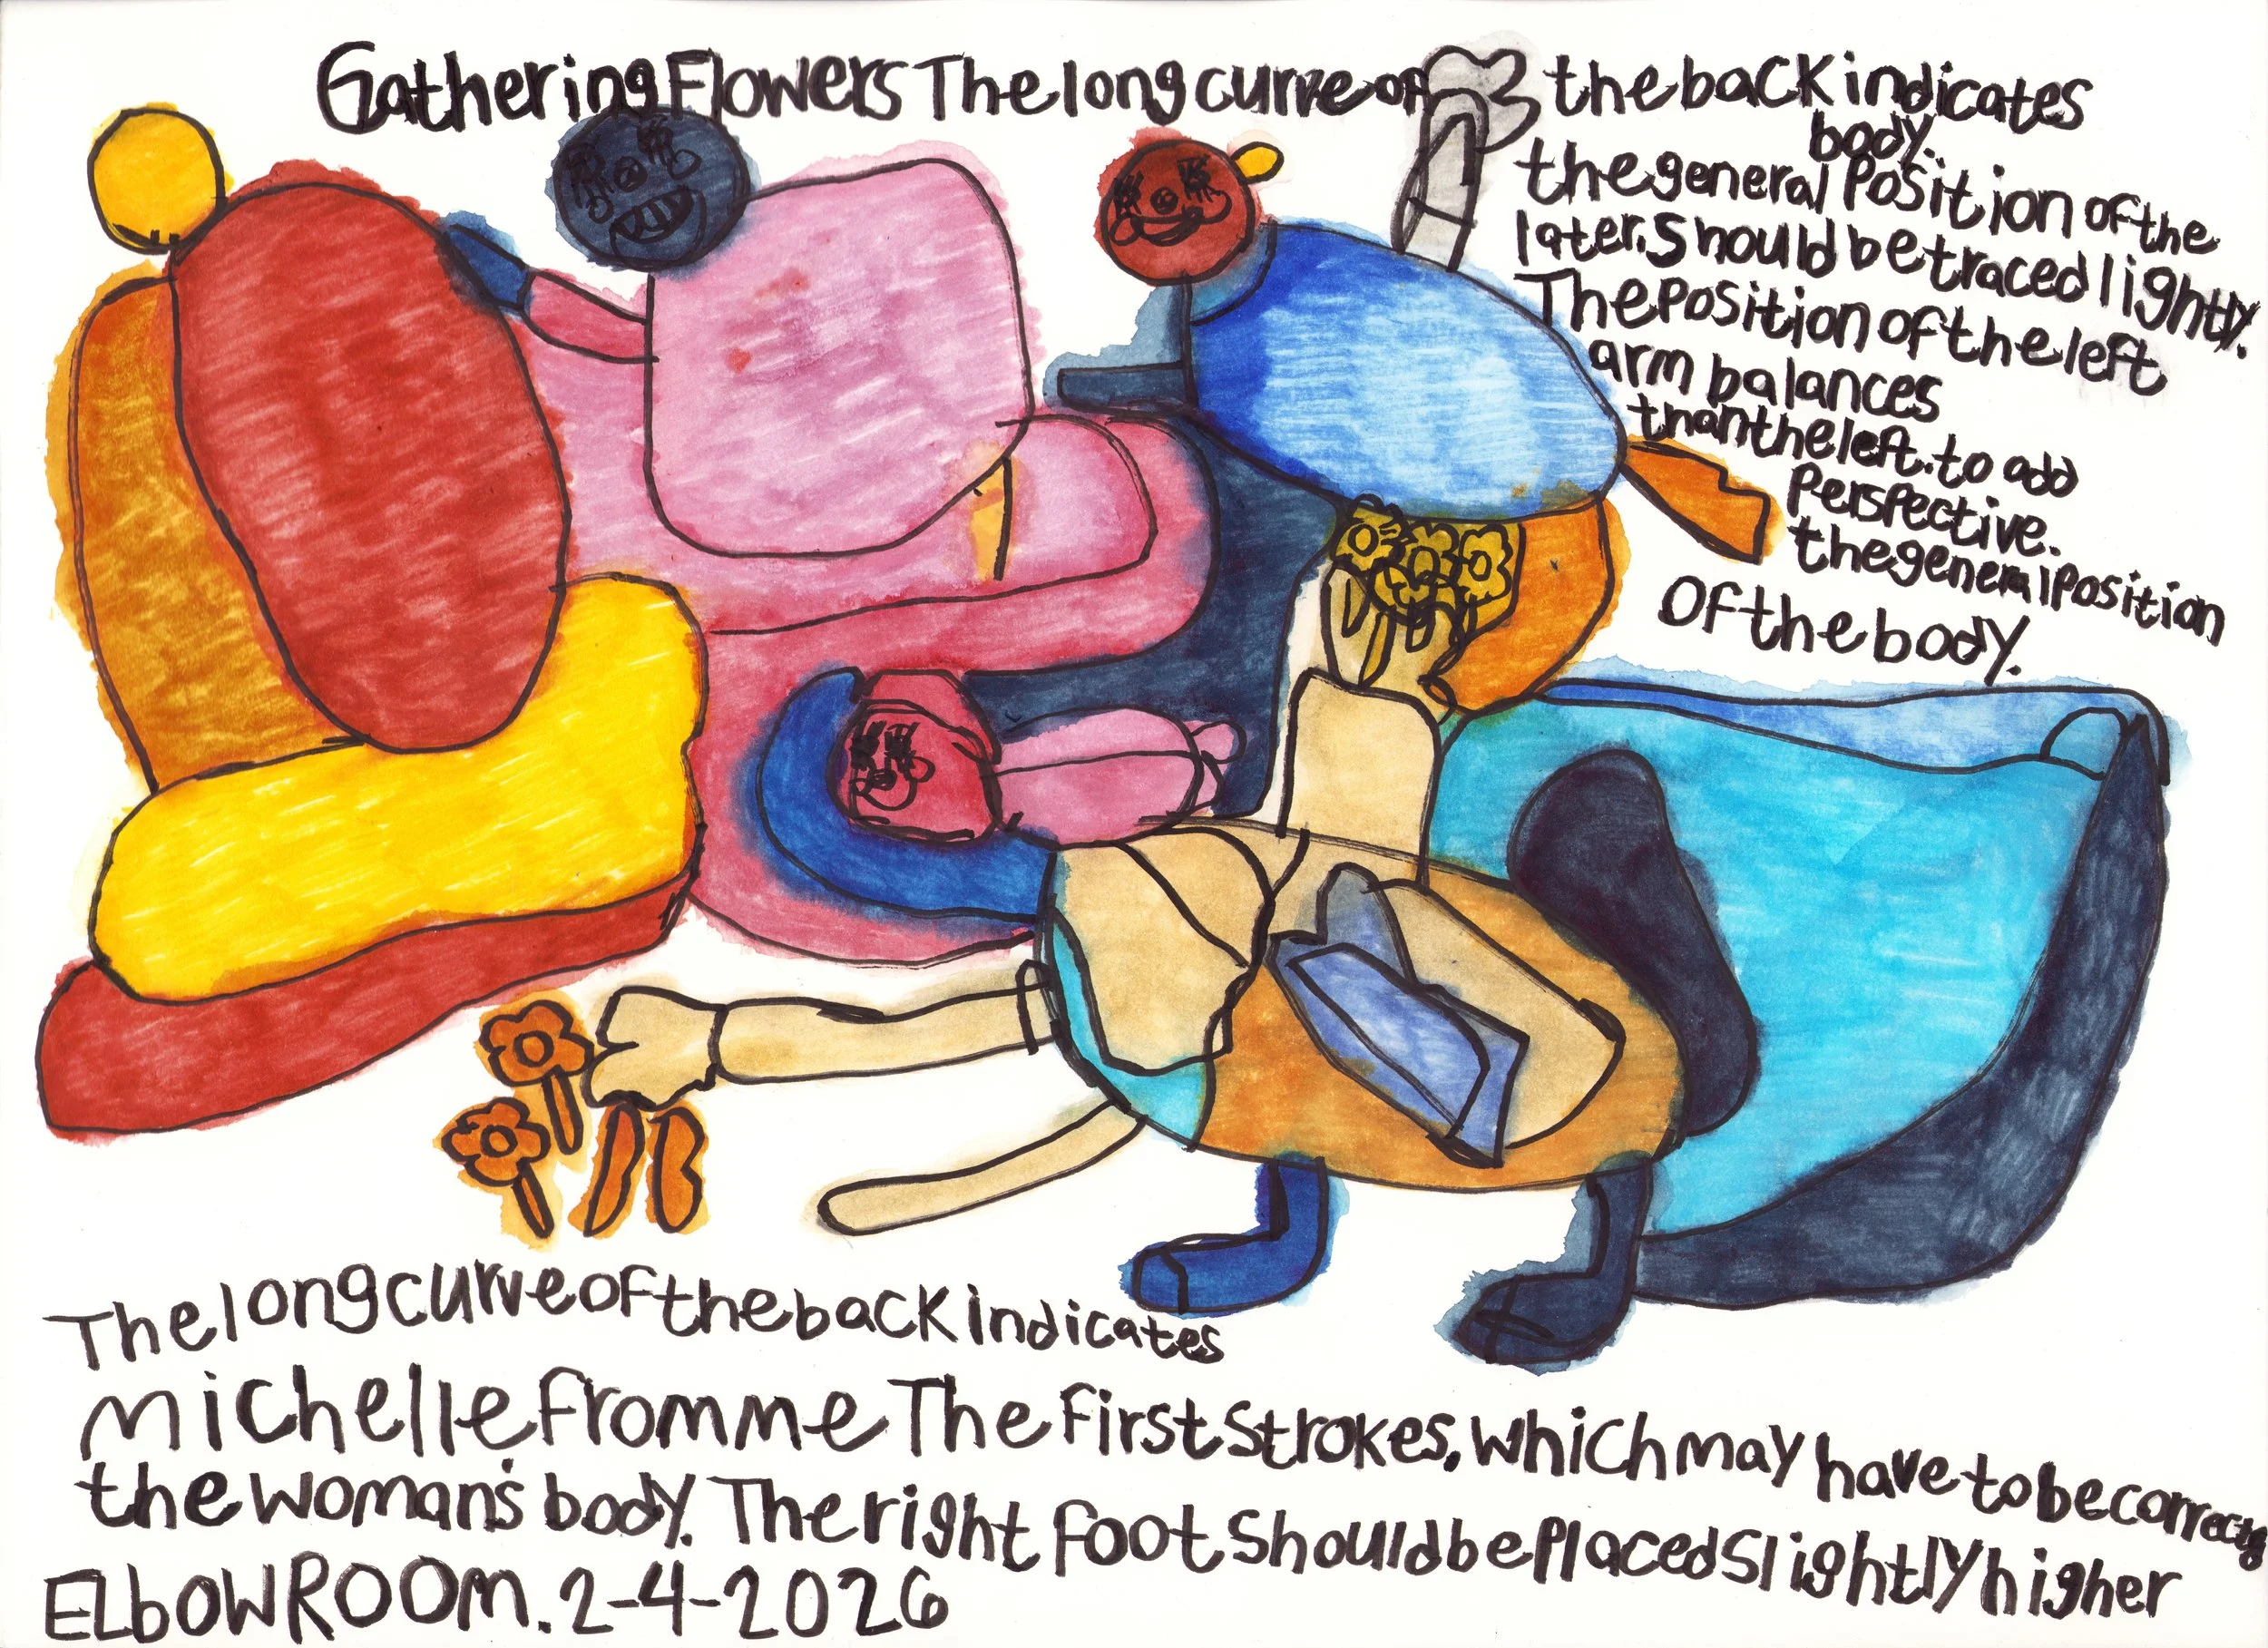 Gathering Flowers The long curve of the back indicates
body.
the general Position of the
later. Should be traced lightly.
The Position of the left
arm balances
than the left. to add
Perspective.
the general Position
Of the body.
The long curve of the back indicates
michelle fromme The First Strokes, which may have to be
the woman's body. The right foot Should be Placed Slightly higher
ELbOWROOm. 2-4-2026